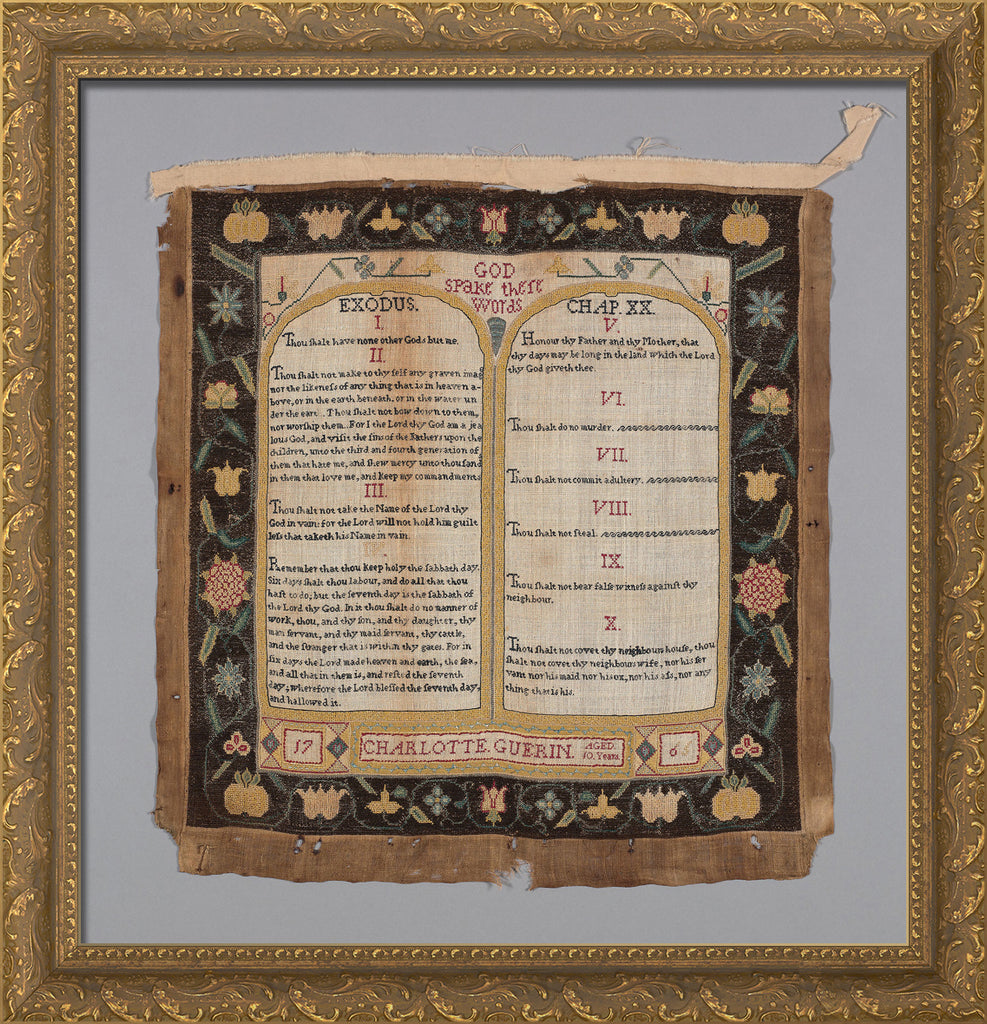 GOD
spake these
Words
EXODUS.
I.
Thou ſhalt have none other Gods but me.
II.
Thou ſhalt not make to thy ſelf any graven imag
nor the likeneſs of any thing that is in heaven a-
bove, or in the earth beneath, or in the water un
der the eart... Thou ſhalt not bow down to them,
nor worſhip them... For I the Lord thy God am a jea
lous God, and viſit the ſins of the Fathers upon the
children, unto the third and fourth generation of
them that hate me, and ſhew mercy unto thouſand
in them that love me, and keep my commandments
III.
Thou ſhalt not take the Name of the Lord thy
God in vain: for the Lord will not hold him guilt
leſs that taketh his Name in vain.
Remember that thou keep holy the ſabbath day.
Six days ſhalt thou labour, and do all that thou
haſt to do; but the ſeventh day is the ſabbath of
the Lord thy God. In it thou ſhalt do no manner of
work, thou, and thy ſon, and thy daughter, thy
man ſervant, and thy maid ſervant, thy cattle,
and the ſtranger that is within thy gates. For in
ſix days the Lord made heaven and earth, the ſea,
and all that in them is, and reſted the ſeventh
day; wherefore the Lord bleſſed the ſeventh day,
and hallowed it.
CHAP. XX.
V.
Honour thy Father and thy Mother, that
thy days may be long in the land which the Lord
thy God giveth thee.
VI.
Thou ſhalt do no murder.
VII.
Thou ſhalt not commit adultery.
VIII.
Thou ſhalt not ſteal.
IX.
Thou ſhalt not bear falſe witneſs againſt thy
neighbour.
X.
Thou ſhalt not covet thy neighbours houſe, thou
ſhalt not covet thy neighbours wife, nor his ſer
vant nor his maid nor his ox, nor his aſs, nor any
thing that is his.
17
CHARLOTTE. GUERIN.
AGED.
10. Years
6